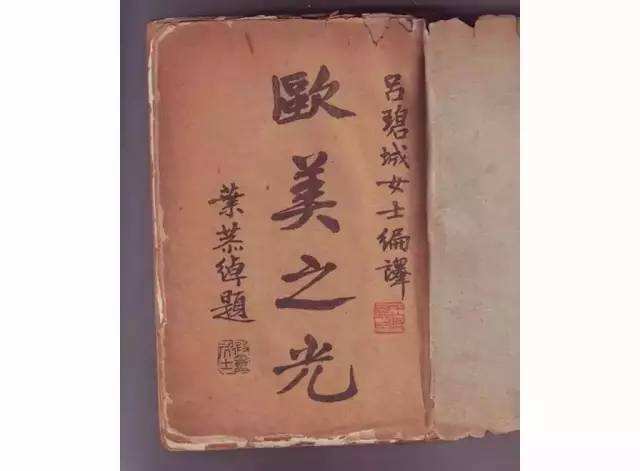 吕碧城女士编譯
歐美之光
葉恭綽題